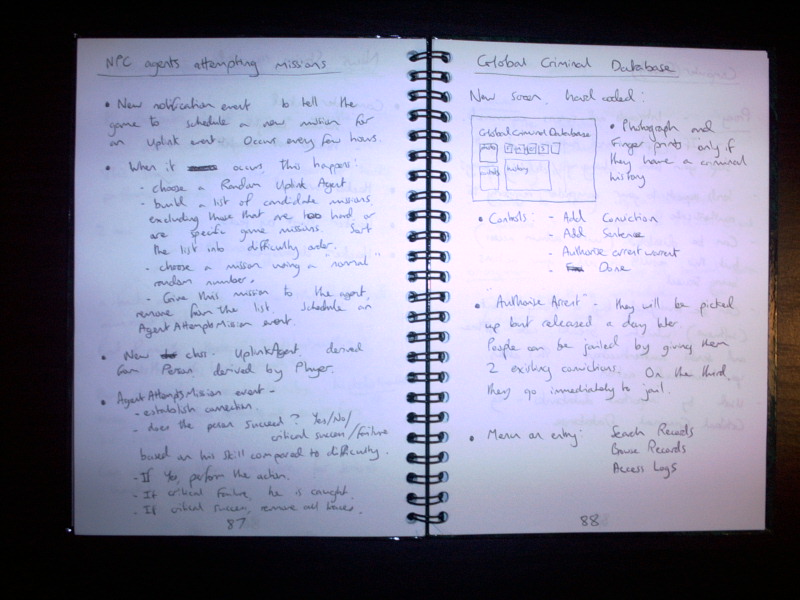 NPC agents attempting missions
• New notification event to tell the
game to schedule a new mission for
an Uplink event. Occurs every few hours.
• When it occurs, this happens:
- choose a Random Uplink Agent.
- build a list of candidate missions
excluding those that are too hard or
are specific game missions. Sort
the list into difficulty order.
- choose a mission using a "normal"
random number.
- Give this mission to the agent,
remove from the list. Schedule an
AgentAttemptsMission event.
• New class. UplinkAgent. derived
from Person derived by Player.
• AgentAttemptsMission event -
- establish connection.
- does the person succeed? Yes/No/
critical success/failure
based on his skill compared to difficulty.
- If Yes, perform the action.
- If critical failure, he is caught.
- If critical success, remove all traces.
87
Global Criminal Database
New screen, hard coded:
Global Criminal Database
history
• Photograph and
Finger prints only if
they have a criminal
history
• Controls: - Add Conviction
- Add Sentence
- Authorise arrest warrent
- Done
• "Authorise Arrest" - they will be picked
up but released a day later.
People can be jailed by giving them
2 existing convictions. On the third,
they go immediately to jail.
• Menu on entry: Search Records
Browse Records
Access Logs
88